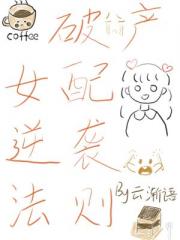 coffee
破产
女配
逆袭
法则
By云渐语